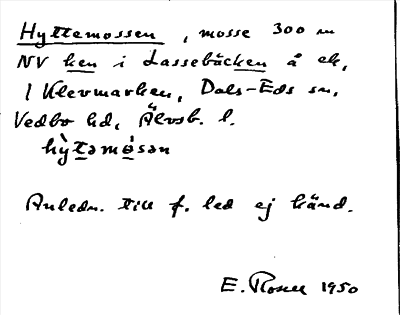 Hyttemossen, mosse 300 m
NV hen i Lassebäcken å ek,
1 Klevmarken, Dals-Eds sn,
Vedbo hd, Älvsb. l.
hỳtəmósən
Anledn. till f. led ej känd.
E. Rosell 1950